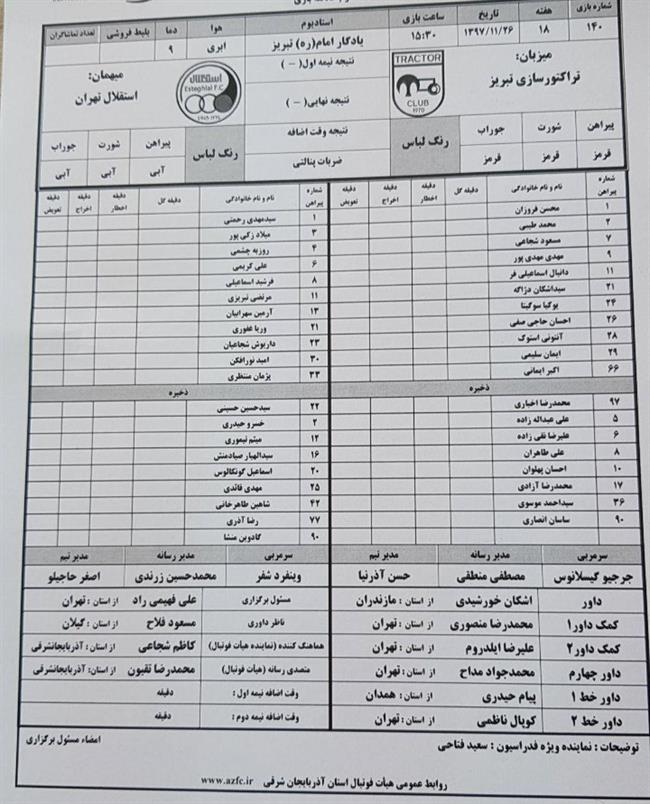 شماره بازی هفته تاریخ ساعت بازی استادیوم هوا دما بلیط فروشی تعداد تماشاگران
۱۴۰ ۱۸ ۱۳۹۷/۱۱/۲۶ ۱۵:۳۰ یادگار امام(ره) تبریز ابری ۹
میزبان: TRACTOR CLUB 1970 نتیجه نیمه اول( – ) استقلال Esteghlal F.C میهمان:
تراکتورسازی تبریز نتیجه نهایی( – ) استقلال تهران
پیراهن شورت جوراب رنگ لباس نتیجه وقت اضافه رنگ لباس پیراهن شورت جوراب
قرمز قرمز قرمز ضربات پنالتی آبی آبی آبی
شماره پیراهن نام و نام خانوادگی دقیقه گل دقیقه اخطار دقیقه اخراج دقیقه تعویض شماره پیراهن نام و نام خانوادگی دقیقه گل دقیقه اخطار دقیقه اخراج دقیقه تعویض
۱ محسن فروزان ۱ سیدمهدی رحمتی
۲ محمد طیبی ۳ میلاد زکی پور
۷ مسعود شجاعی ۴ روزبه چشمی
۹ مهدی مهدی پور ۶ علی کریمی
۱۱ دانیال اسماعیلی فر ۸ فرشید اسماعیلی
۲۱ سیداشکان دژاگه ۱۱ مرتضی تبریزی
۲۴ یوکیا سوگیتا ۱۳ آرمین سهرابیان
۲۶ احسان حاجی صفی ۲۱ وریا غفوری
۲۸ آنتونی استوک ۲۳ داریوش شجاعیان
۲۹ ایمان سلیمی ۳۰ امید نورافکن
۶۶ اکبر ایمانی ۳۳ پژمان منتظری
ذخیره ذخیره
۹۷ محمدرضا اخباری ۲۲ سیدحسین حسینی
۵ علی عبداله زاده ۲ خسرو حیدری
۶ علیرضا نقی زاده ۱۲ میثم تیموری
۸ علی طاهران ۱۶ سیدالهیار صیادمنش
۱۰ احسان پهلوان ۲۰ اسماعیل گونکالوس
۱۷ محمدرضا آزادی ۲۵ مهدی قائدی
۳۶ سیداحمد موسوی ۴۲ شاهین طاهرخانی
۹۰ ساسان انصاری ۷۷ رضا آذری
۹۰ گادوین منشا
سرمربی مدیر رسانه مدیر تیم سرمربی مدیر رسانه مدیر تیم
جرجیو گیسلانوس مصطفی منطقی حسن آذرنیا وینفرد شفر محمدحسین زرندی اصغر حاجیلو
داور اشکان خورشیدی از استان : مازندران مسئول برگزاری علی فهیمی راد از استان : تهران
کمک داور۱ محمدرضا منصوری از استان : تهران ناظر داوری مسعود فلاح از استان : گیلان
کمک داور۲ علیرضا ایلدروم از استان : تهران هماهنگ کننده (نماینده هیأت فوتبال) کاظم شجاعی از استان : آذربایجانشرقی
داور چهارم محمدجواد مداح از استان : تهران متصدی رسانه (هیأت فوتبال) محمدرضا نقیون از استان: آذربایجانشرقی
داور خط ۱ پیام حیدری از استان : همدان وقت اضافه نیمه اول : دقیقه
داور خط ۲ کوپال ناظمی از استان : تهران وقت اضافه نیمه دوم : دقیقه
توضیحات : نماینده ویژه فدراسیون : سعید فتاحی امضاء مسئول برگزاری
روابط عمومی هیأت فوتبال استان آذربایجان شرقی www.azfc.ir